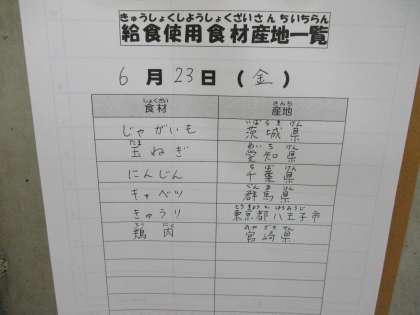 きゅうしょくしようしょくざいさんちいちらん
給食使用食材産地一覧
6月23日(金)
しょくざい さんち
食材 産地
いばらきけん
じゃがいも 茨城県
たま あいちけん
玉ねぎ 愛知県
ちばけん
にんじん 千葉県
ぐんまけん
キャベツ 群馬県
とうきょうとはちおうじし
きゅうり 東京都八王子市
とりにく みやざきけん
鶏肉 宮崎県